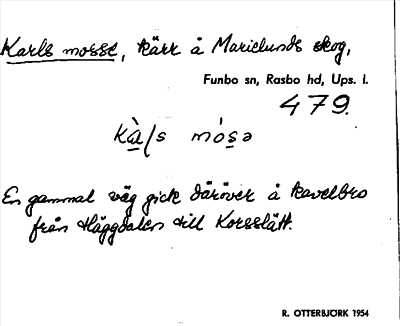 Karls mosse, kärr å Marielunds skog,
Funbo sn, Rasbo hd, Ups. l.
479.
kà̱l/s mósə
En gammal väg gick däröver å kavelbro
från Häggdalen till Korsslätt.
R. OTTERBJÖRK 1954